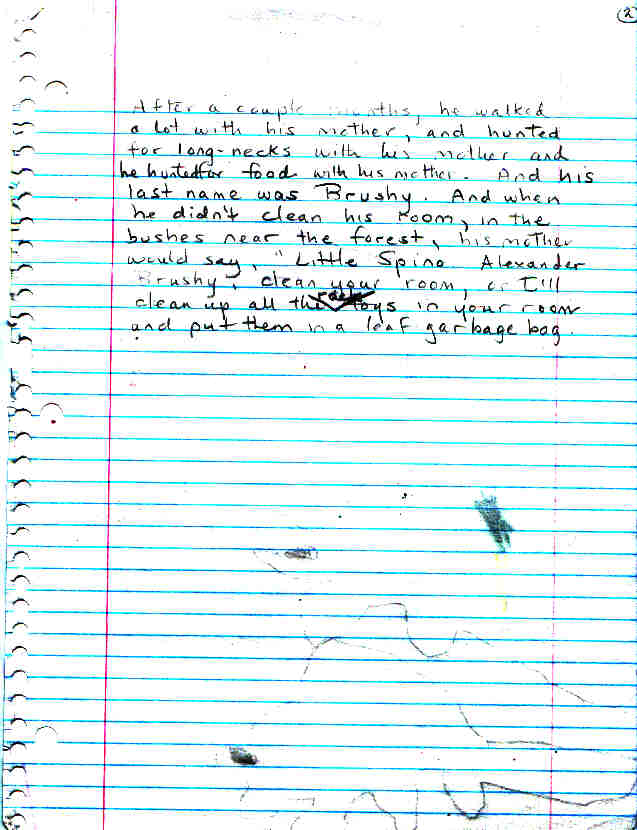 2
After a couple months, he walked
a lot with his mother, and hunted
for long-necks with his mother and
he hunted for food with his mother. And his
last name was Brushy. And when
he didn't clean his room, in the
bushes near the forest, his mother
would say, "Little Spino Alexander
Brushy, clean your room, or I'll
clean up all the rock toys in your room
and put them in a leaf garbage bag.